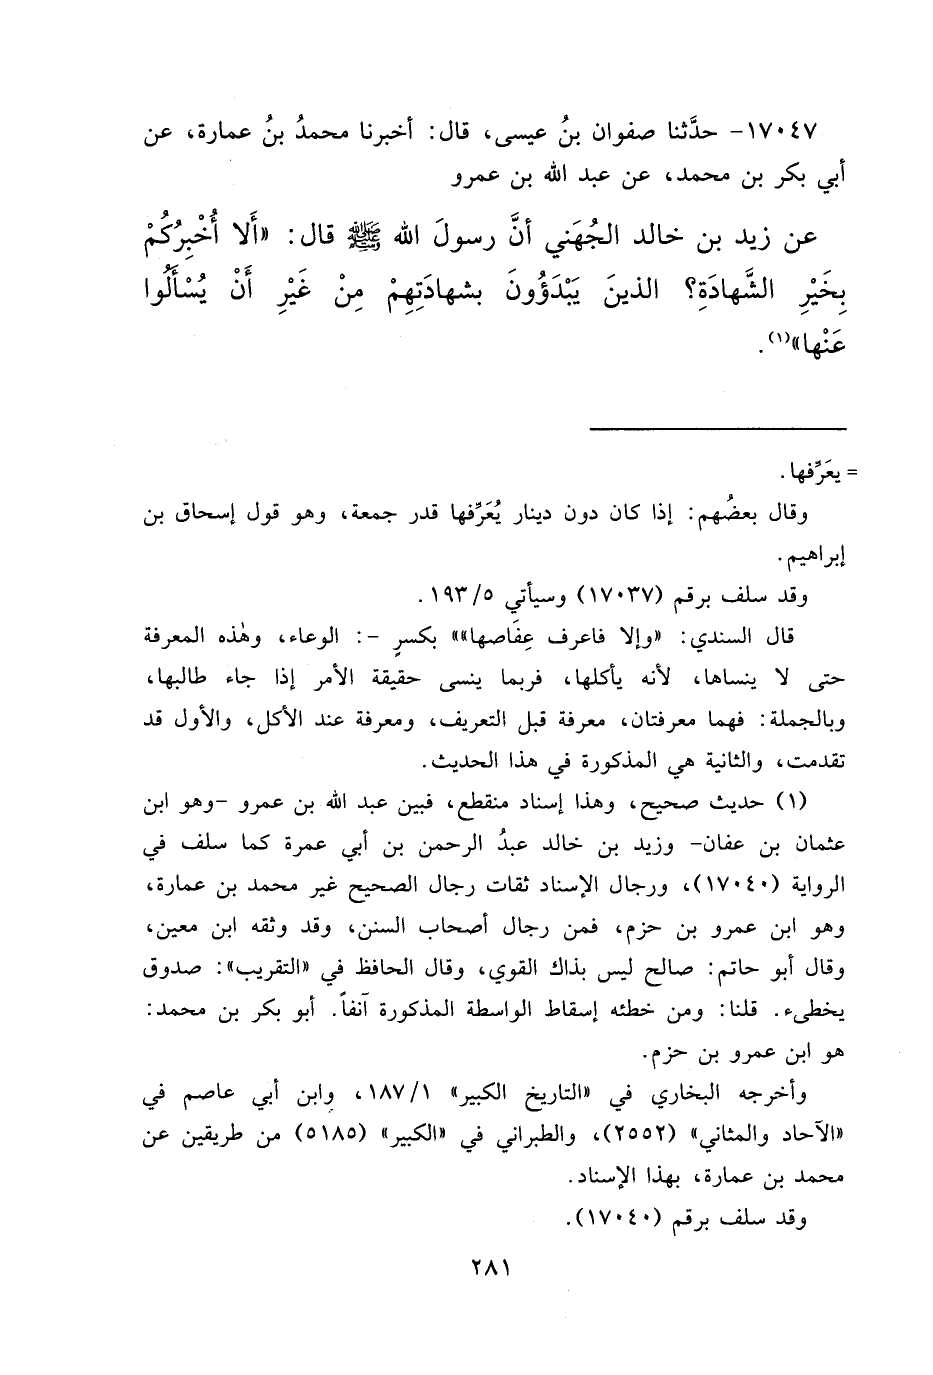 ١٧٠٤٧- حدَّثنا صفوان بنُ عيسى، قال: أخبرنا محمدُ بنُ عمارة، عن
أبي بكر بن محمد، عن عبد الله بن عمرو
عن زيد بن خالد الجُهَني أنَّ رسولَ الله ﷺ قال: «أَلا أُخْبِرُكُمْ
بِخَيْرِ الشَّهادَةِ؟ الذينَ يَبْدَؤُونَ بشهادَتِهِمْ مِنْ غَيْرِ أَنْ يُسْأَلُوا
عَنْها»(١).
= يعَرِّفها.
وقال بعضُهم: إذا كان دون دينار يُعَرِّفها قدر جمعة، وهو قول إسحاق بن
إبراهيم.
وقد سلف برقم (١٧٠٣٧) وسيأتي ١٩٣/٥.
قال السندي: «وإلا فاعرف عِفَاصها»» بكسرٍ -: الوعاء، وهٰذه المعرفة
حتى لا ينساها، لأنه يأكلها، فربما ينسى حقيقة الأمر إذا جاء طالبها،
وبالجملة: فهما معرفتان، معرفة قبل التعريف، ومعرفة عند الأكل، والأول قد
تقدمت، والثانية هي المذكورة في هذا الحديث.
(١) حديث صحيح، وهذا إسناد منقطع، فبين عبد الله بن عمرو -وهو ابن
عثمان بن عفان- وزيد بن خالد عبدُ الرحمن بن أبي عمرة كما سلف في
الرواية (١٧٠٤٠)، ورجال الإسناد ثقات رجال الصحيح غير محمد بن عمارة،
وهو ابن عمرو بن حزم، فمن رجال أصحاب السنن، وقد وثقه ابن معين،
وقال أبو حاتم: صالح ليس بذاك القوي، وقال الحافظ في «التقريب»: صدوق
يخطىء. قلنا: ومن خطئه إسقاط الواسطة المذكورة آنفاً. أبو بكر بن محمد:
هو ابن عمرو بن حزم.
وأخرجه البخاري في «التاريخ الكبير» ١٨٧/١، وابن أبي عاصم في
«الآحاد والمثاني» (٢٥٥٢)، والطبراني في «الكبير» (٥١٨٥) من طريقين عن
محمد بن عمارة، بهذا الإسناد.
وقد سلف برقم (١٧٠٤٠).
٢٨١